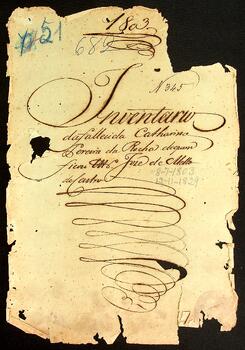 1803
№51
685
N 345
Inventario
da fallecida Catharina
Pereira da Rocha de quem
ficou Test.º Jose de Mello
de Castro
8-7-1803
12-11-1829